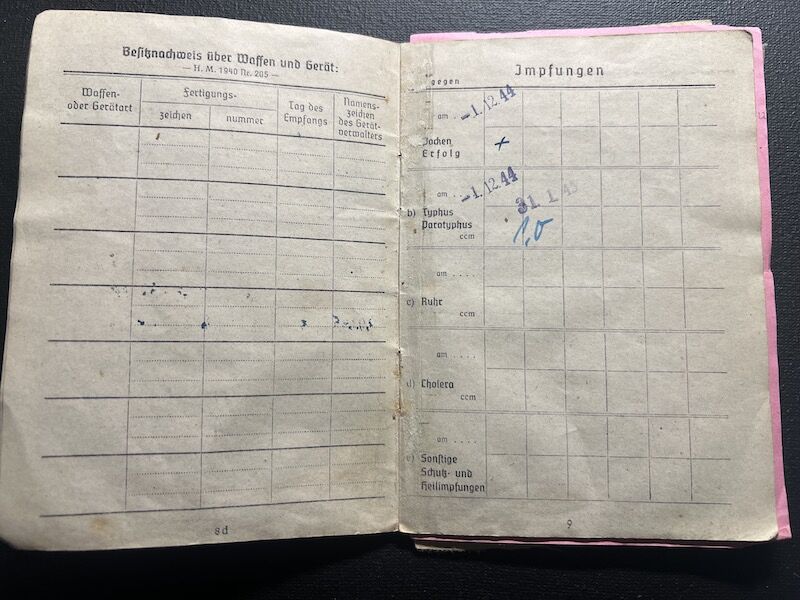 Besitznachweis über Waffen und Gerät:
— H. M. 1940 Nr. 205 —
Waffen- oder Gerätart
Fertigungs-
zeichen
nummer
Tag des Empfangs
Namens-
zeichen
des Gerät-
verwalters
8d
Impfungen
gegen
am -1.12.44
Pocken
Erfolg +
am . -1.12.44 31. 1. 45
b) Typhus
Paratyphus
ccm
1,0
am . . . .
c) Ruhr
ccm
am . . . .
d) Cholera
ccm
am . . . .
e) Sonstige
Schutz- und
Heilimpfungen
9